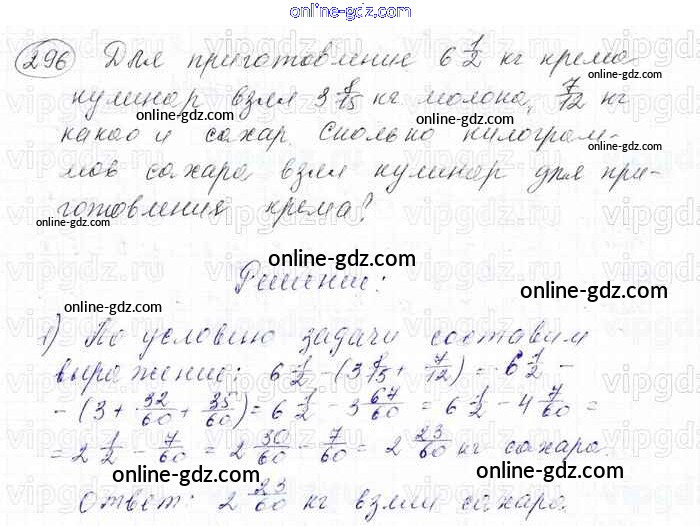 online-gdz.com
296 Для приготовление 6 1/2 кг крема
кулинар взял 3 8/15 кг молока, 7/12 кг
какао и сахар. Сколько килограм-
мов сахара взял кулинар для при-
готовления крема?
Решение:
1) По условию задачи составим
выражение: 6 1/2 - (3 8/15 + 7/12) = 6 1/2 -
- (3 + 32/60 + 35/60) = 6 1/2 - 3 67/60 = 6 1/2 - 4 7/60 =
= 2 1/2 - 7/60 = 2 30/60 - 7/60 = 2 23/60 кг сахара.
Ответ: 2 23/60 кг взяли сахара.